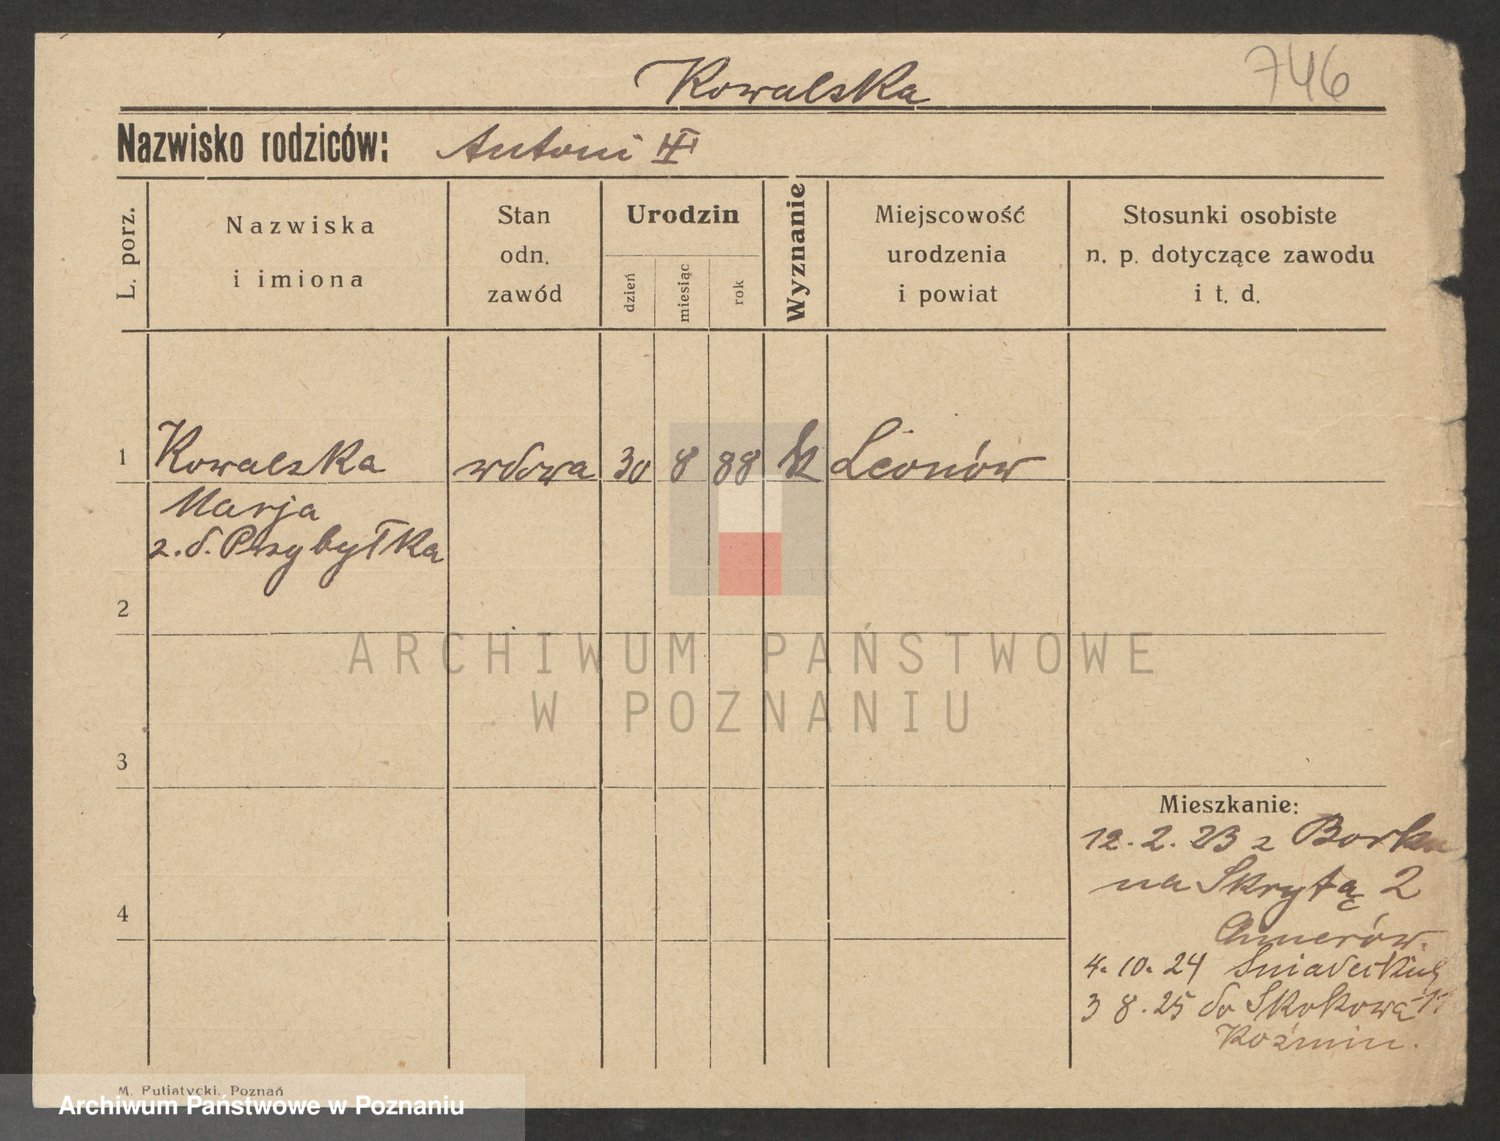 746
Kowalska
Nazwisko rodziców: Antoni III
L. porz.
Nazwiska
i imiona
Stan
odn.
zawód
Urodzin
dzień
miesiąc
rok
Wyznanie
Miejscowość
urodzenia
i powiat
Stosunki osobiste
n. p. dotyczące zawodu
i t. d.
1 Kowalska wdowa 30 8 88 k Leonów
Marja
z. d. Przybyłka
2
ARCHIWUM PAŃSTWOWE
W POZNANIU
3
Mieszkanie:
12. 2. 23 z Borku
na Skrytą 2
4
4. 10. 24 Śniadeckich
3 8. 25 do Skokowa
Koźmin.
M. Putiatycki, Poznań
Archiwum Państwowe w Poznaniu